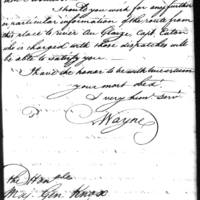 Should you wish for any further
particular information of the route from
this place to river Au Glaize Capt. Eaton
who is charged with those dispatches will
be able to satisfy you —
I have the honor to be with true esteem
your most Obed.
& very hum. Serv.
Wayne
The Hon'ble
Maj. Gen. Knox